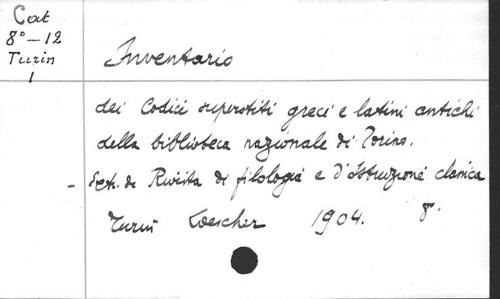 Cat
8° - 12
Turin
1
Inventario
dei Codici superstiti greci e latini antichi
della biblioteca nazionale di Torino.
- Extr. de Rivista di filologia e d'istruzione classica
Turin Loescher 1904. 8°.